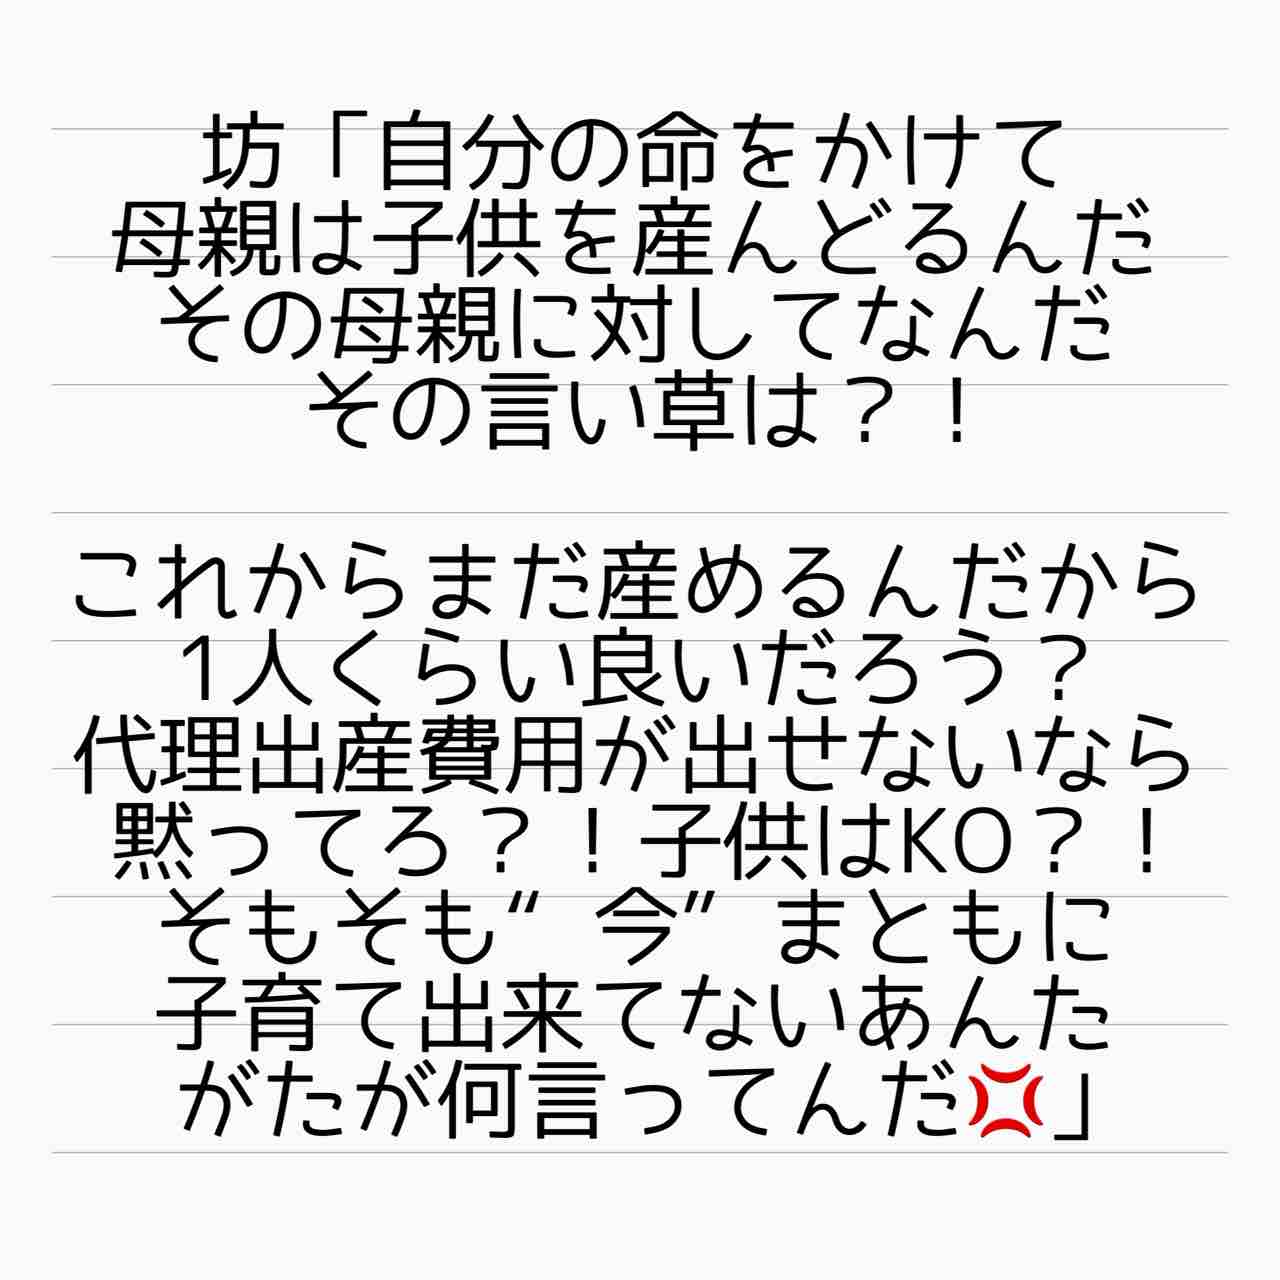 坊「自分の命をかけて
母親は子供を産んどるんだ
その母親に対してなんだ
その言い草は？！
これからまだ産めるんだから
1人くらい良いだろう？
代理出産費用が出せないなら
黙ってろ？！子供はKO？！
そもそも“今”まともに
子育て出来てないあんた
がたが何言ってんだ💢」